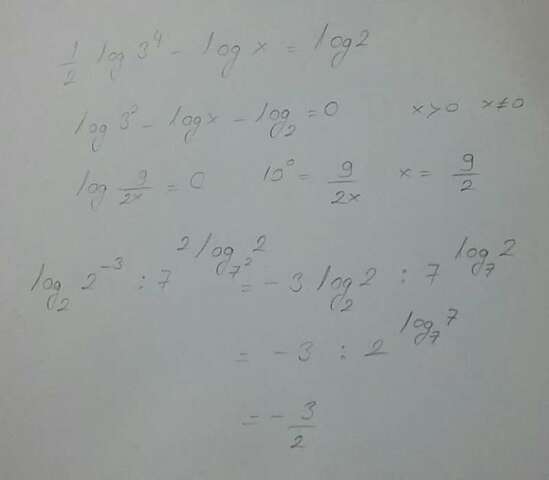 ½ log 3⁴ - log x = log 2
log 3² - log x - log₂ = 0 x > 0 x ≠ 0
log 9/2x = 0 10⁰ = 9/2x x = 9/2
log₂ 2⁻³ : 7^(2 log_(7²) 2) = -3 log₂ 2 : 7^(log₇ 2)
= -3 : 2^(log₇ 7)
= - 3/2